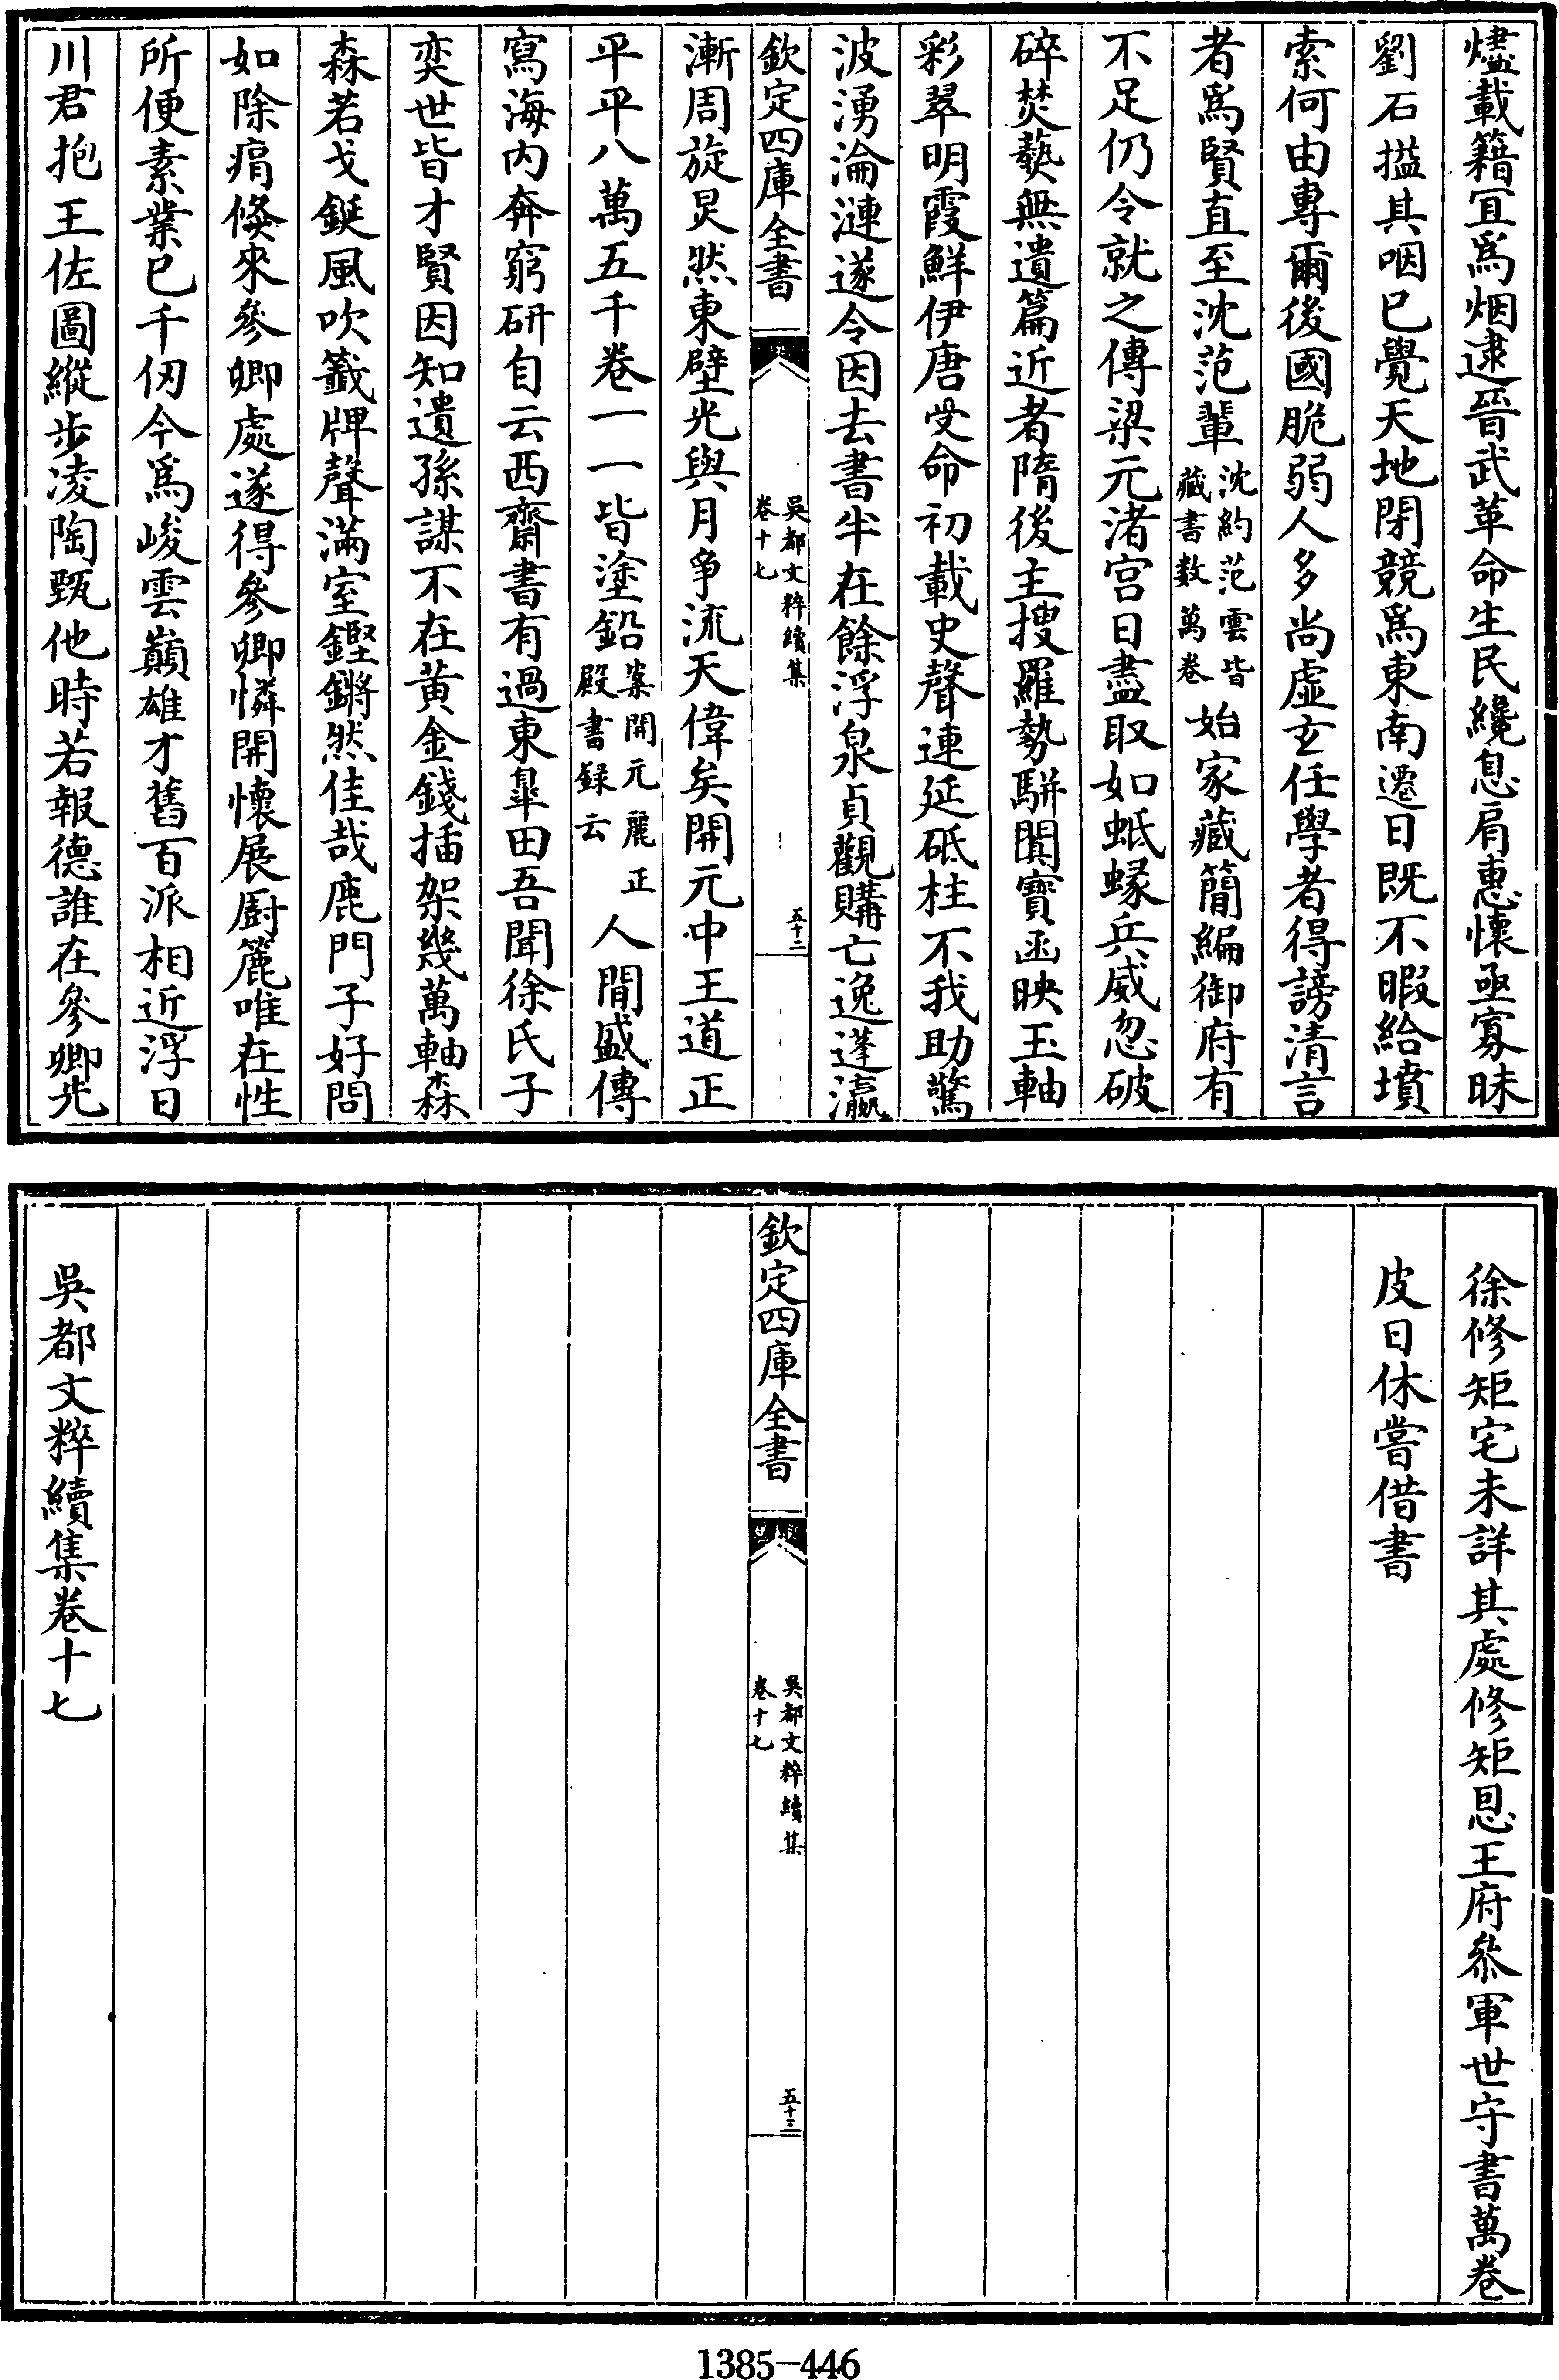 燼載籍冝爲烟逮晉武革命生民纔息肩惠懷亟寡昧
劉石搤其咽已覺天地閉競爲東南遷日既不暇給墳
索何由專爾後國脆弱人多尚虛玄任學者得謗清言
者爲賢直至沈范輩沈約范雲皆藏書数萬卷始家藏簡編御府有
不足仍令就之傳梁元渚宫日盡取如蚳蝝兵威忽破
碎焚爇無遺篇近者隋後主搜羅勢駢闐寶函映玉軸
彩翠明霞鮮伊唐受命初載史聲連延砥柱不我助驚
波湧淪漣遂令因去書半在餘浮泉貞觀購亡逸蓬瀛
欽定四庫全書
吳都文粹續集
卷十七
五十二
漸周旋炅然東壁光與月爭流天偉矣開元中王道正
平平八萬五千卷一一皆塗鉛案開元麗正殿書録云人間盛傳
寫海内奔窮研自云西齋書有過東臯田吾聞徐氏子
奕世皆才賢因知遺孫謀不在黄金錢插架幾萬軸森
森若戈鋋風吹籤牌聲滿室鏗鏘然佳哉鹿門子好問
如除痟倏來參卿處遂得參卿憐開懷展厨簏唯在性
所便素業已千仞今爲峻雲巔雄才舊百派相近浮日
川君抱王佐圖縱步凌陶甄他時若報德誰在參卿先
徐修矩宅未詳其處修矩恩王府叅軍世守書萬卷
皮日休嘗借書
欽定四庫全書
吳都文粹續集
卷十七
五十三
吳都文粹續集卷十七
1385-446